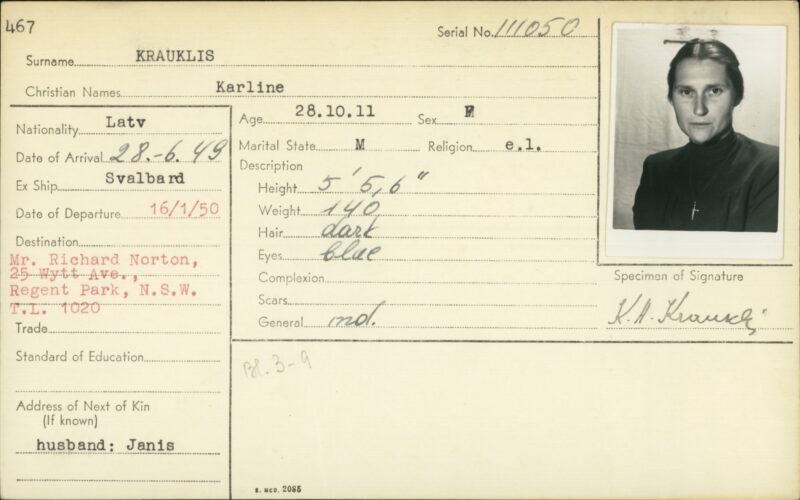 467
Serial No. 111050
Surname KRAUKLIS
Christian Names Karline
Nationality Latv
Date of Arrival 28.-6.49
Ex Ship Svalbard
Date of Departure 16/1/50
Destination
Mr. Richard Norton,
25 Wytt Ave.,
Regent Park, N.S.W.
T.L. 1020
Trade
Standard of Education
Address of Next of Kin
(If known)
husband: Janis
Age 28.10.11 Sex F
Marital State M Religion e.l.
Description
Height 5' 5,6"
Weight 140
Hair dark
Eyes blue
Complexion
Scars
General md.
Bl. 3-9
S. MCD. 2085
Specimen of Signature